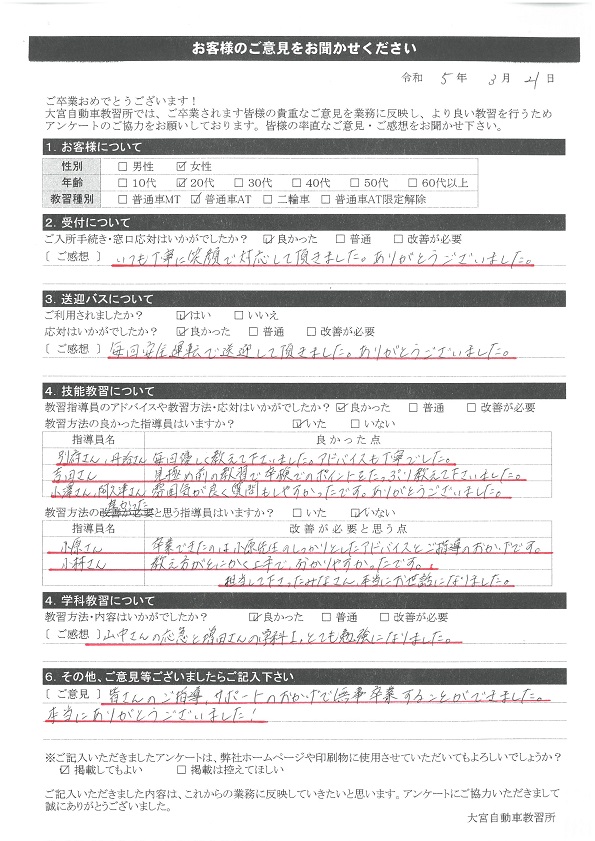 お客様のご意見をお聞かせください
令和 5 年 3 月 21 日
ご卒業おめでとうございます！
大宮自動車教習所では、ご卒業されます皆様の貴重なご意見を業務に反映し、より良い教習を行うため
アンケートのご協力をお願いしております。皆様の率直なご意見・ご感想をお聞かせ下さい。
1. お客様について
性別 □ 男性 ☑ 女性
年齢 □ 10代 ☑ 20代 □ 30代 □ 40代 □ 50代 □ 60代以上
教習種別 □ 普通車MT ☑ 普通車AT □ 二輪車 □ 普通車AT限定解除
2. 受付について
ご入所手続き・窓口応対はいかがでしたか？ ☑ 良かった □ 普通 □ 改善が必要
［ ご感想 ］ いつも丁寧に笑顔で対応して頂きました。ありがとうございました。
3. 送迎バスについて
ご利用されましたか？ ☑ はい □ いいえ
応対はいかがでしたか？ ☑ 良かった □ 普通 □ 改善が必要
［ ご感想 ］ 毎回安全運転で送迎して頂きました。ありがとうございました。
4. 技能教習について
教習指導員のアドバイスや教習方法・応対はいかがでしたか？ ☑ 良かった □ 普通 □ 改善が必要
教習方法の良かった指導員はいますか？ ☑ いた □ いない
指導員名 良かった点
別府さん、丹治さん 毎回優しく教えて下さいました。アドバイスも丁寧でした。
吉田さん 見極め前の教習で卒験でのポイントをたっぷり教えて下さいました。
小澤さん、阿久津さん 雰囲気が良く質問もしやすかったです。ありがとうございました。
良かった
教習方法の改善が必要と思う指導員はいますか？ □ いた ☑ いない
指導員名 改善が必要と思う点
小原さん 卒業できたのは小原先生のしっかりとしたアドバイスとご指導のおかげです。
小林さん 教え方がとにかく上手で、分かりやすかったです。
担当して下さったみなさん、本当にお世話になりました。
4. 学科教習について
教習方法・内容はいかがでしたか？ ☑ 良かった □ 普通 □ 改善が必要
［ ご感想 ］ 山中さんの応急と増田さんの学科1、とても勉強になりました。
6. その他、ご意見等ございましたらご記入下さい
［ ご意見 ］ 皆さんのご指導、サポートのおかげで無事卒業することができました。
本当にありがとうございました！
※ご記入いただきましたアンケートは、弊社ホームページや印刷物に使用させていただいてもよろしいでしょうか？
☑ 掲載してもよい □ 掲載は控えてほしい
ご記入いただきました内容は、これからの業務に反映していきたいと思います。アンケートにご協力いただきまして
誠にありがとうございました。
大宮自動車教習所